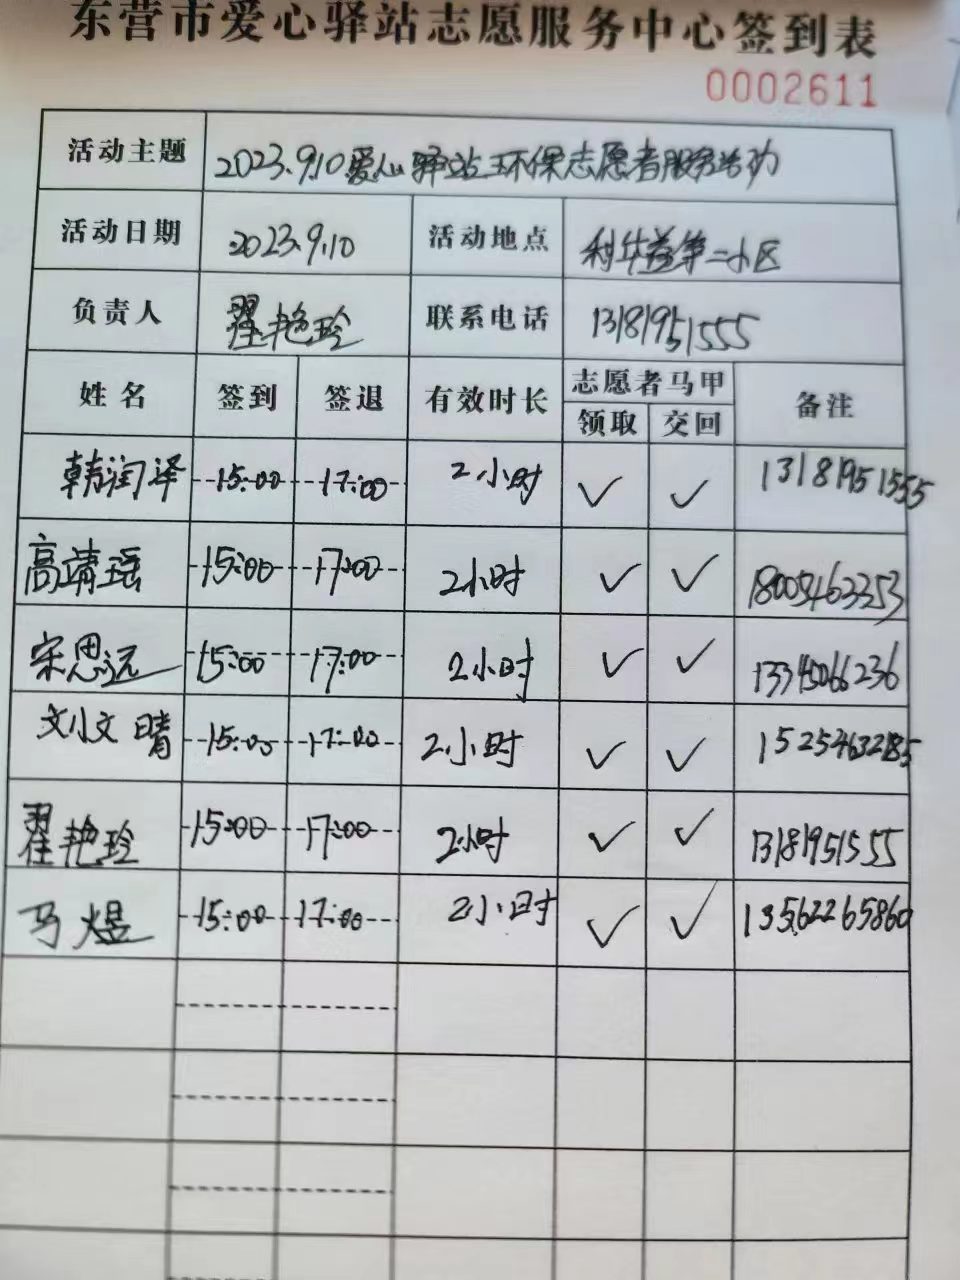 东营市爱心驿站志愿服务中心签到表
0002611
活动主题 2023.9.10爱心驿站环保志愿者服务活动
活动日期 2023.9.10 活动地点 利华益第二小区
负责人 翟艳玲 联系电话 13181951555
姓名 签到 签退 有效时长 志愿者马甲 备注
领取 交回
韩润泽 15:00 17:00 2小时 ✓ ✓ 13181951555
高靖瑶 15:00 17:00 2小时 ✓ ✓ 18005463353
宋思远 15:00 17:00 2小时 ✓ ✓ 13345066236
文小文晴 15:00 17:00 2小时 ✓ ✓ 15254632185
翟艳玲 15:00 17:00 2小时 ✓ ✓ 13181951555
马煜 15:00 17:00 2小时 ✓ ✓ 13562265860